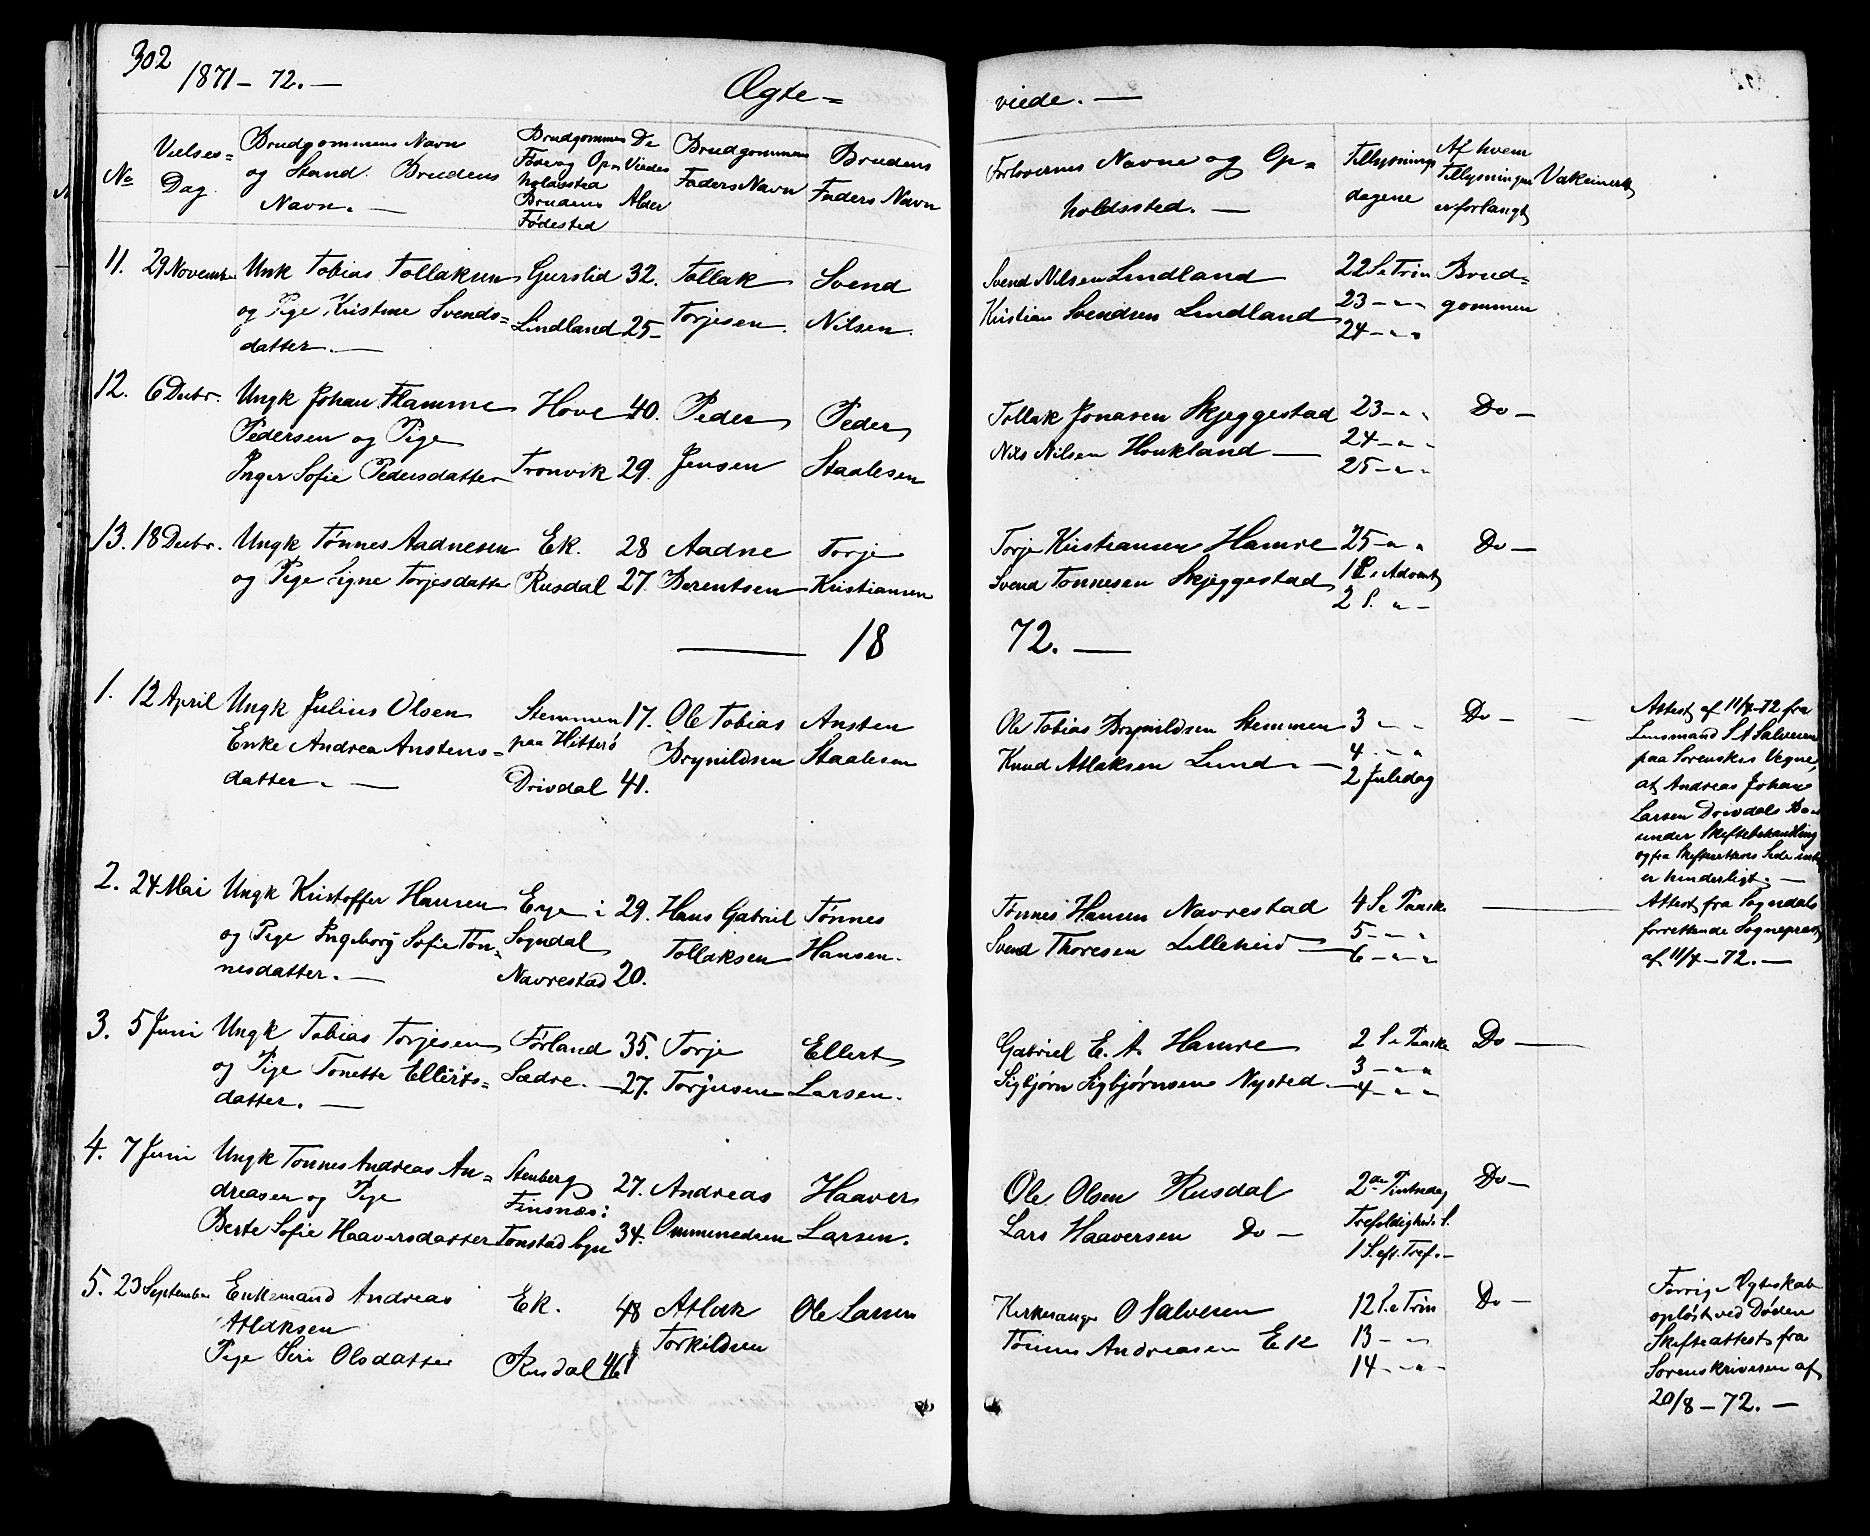 302
1871 - 72. -
Ægte =
viede. -
No
Vielses=
Dag
Brudgommens Navn
og Stand. Brudens
Navn. -
Brudgommens
Føde og Op=
holdssted
Brudens
Fødested
De
Viedes
Alder
Brudgommens
Faders Navn
Brudens
Faders Navn
Forlovernes Navne og Op=
holdssted. -
Tillysnings
dagene
Af hvem
Tillysningen
er forlangt
Vakcinerte
11. 29 November Unk Tobias Tollaksen Gurslid 32. Tollak Svend Svend Nilsen Lindland 22 S e Trin Brud=
og Pige Kristine Svends= Lindland 25- Torjesen. Nilsen. Kristian Svendsen Lindland 23 - " " gommen
datter. - 24 - " "
12. 6 Decbr. Ungk Johan Flamme Hove 40. Peder Peder Tollak Jonasen Skjeggestad 23 - " " Do -
Pedersen og Pige Nils Nilsen Houkland - 24 - " "
Inger Sofie Pedersdatter Tronvik 29. Jensen Staalesen 25 - " "
13. 18 Decbr. Ungk Tønnes Aadnesen Ek. 28 Aadne Torje Torje Kristiansen Hamre 25 - " " Do -
og Pige Signe Torjesdatter Rusdal 27. Berentsen Kristiansen Svend Tonnesen Skjeggestad 1 S. i Advent
2 S. " -
18 72. -
1. 12 April Ungk Julius Olsen Stemmen 17. Ole Tobias Ansten Ole Tobias Brynildsen Stemmen 3 - " Do - -
Enke Andrea Anstens= paa Hitterø Brynildsen Staalesen Knud Atlaksen Lund. - 4 - " "
datter. - Drivdal 41. 2 Juledag
Attest af 11/4-72 fra
Lensmand S A Salvesen
paa Sorenskr Vegne,
at Andreas Johan
Larsen Drivdals Bo
under Skiftebehandling
og fra Skifterettens Side intet
er hinderligt. -
2. 24 Mai Ungk Kristoffer Hansen Eye i 29. Hans Gabriel Tønnes Tønnes Hansen Navrestad 4 S e Paaske -
og Pige Ingeborg Sofie Tøn= Sogndal Tollaksen Hansen. Svend Thoresen Lilleheid - 5 - " "
nesdatter. - Navrestad 20. 6 - " "
Attest fra Sogndals
forrettende Sogneprest
af 11/4 - 72. -
3. 5 Juni Ungk Tobias Torjesen Førland 35. Torje Ellert Gabriel E. A. Hamre 2 S e Paaske Do -
og Pige Tonette Ellerts= Sædre. - 27. Torjusen Larsen. Sigbjørn Sigbjørnsen Nysted. - 3 - " "
datter. - 4 - " "
4. 7 Juni Ungk Tonnes Andreas An= Stenberg 27. Andreas Haaver Ole Olsen Rusdal 2den Pintsedag Do -
dreasen og Pige Finsnæs i Trefoldigheds S.
Berte Sofie Haaversdatter Tonstad sgn 34. Ommundsen Larsen. Lars Haaversen Do - 1 S. eft. Tref. -
5. 23 September Enkemand Andreas Ek. 48 Atlak Ole Larsen Kirkesanger O Salvesen 12 S e Trin Do -
Atlaksen Torkildsen Tønnes Andreasen Ek 13 - "
Pige Siri Olsdatter Rusdal 46 14 - " -
Forrige Ægteskab
opløst ved Døden
Skifteattest fra
Sorenskriveren af
20/8 - 72. -